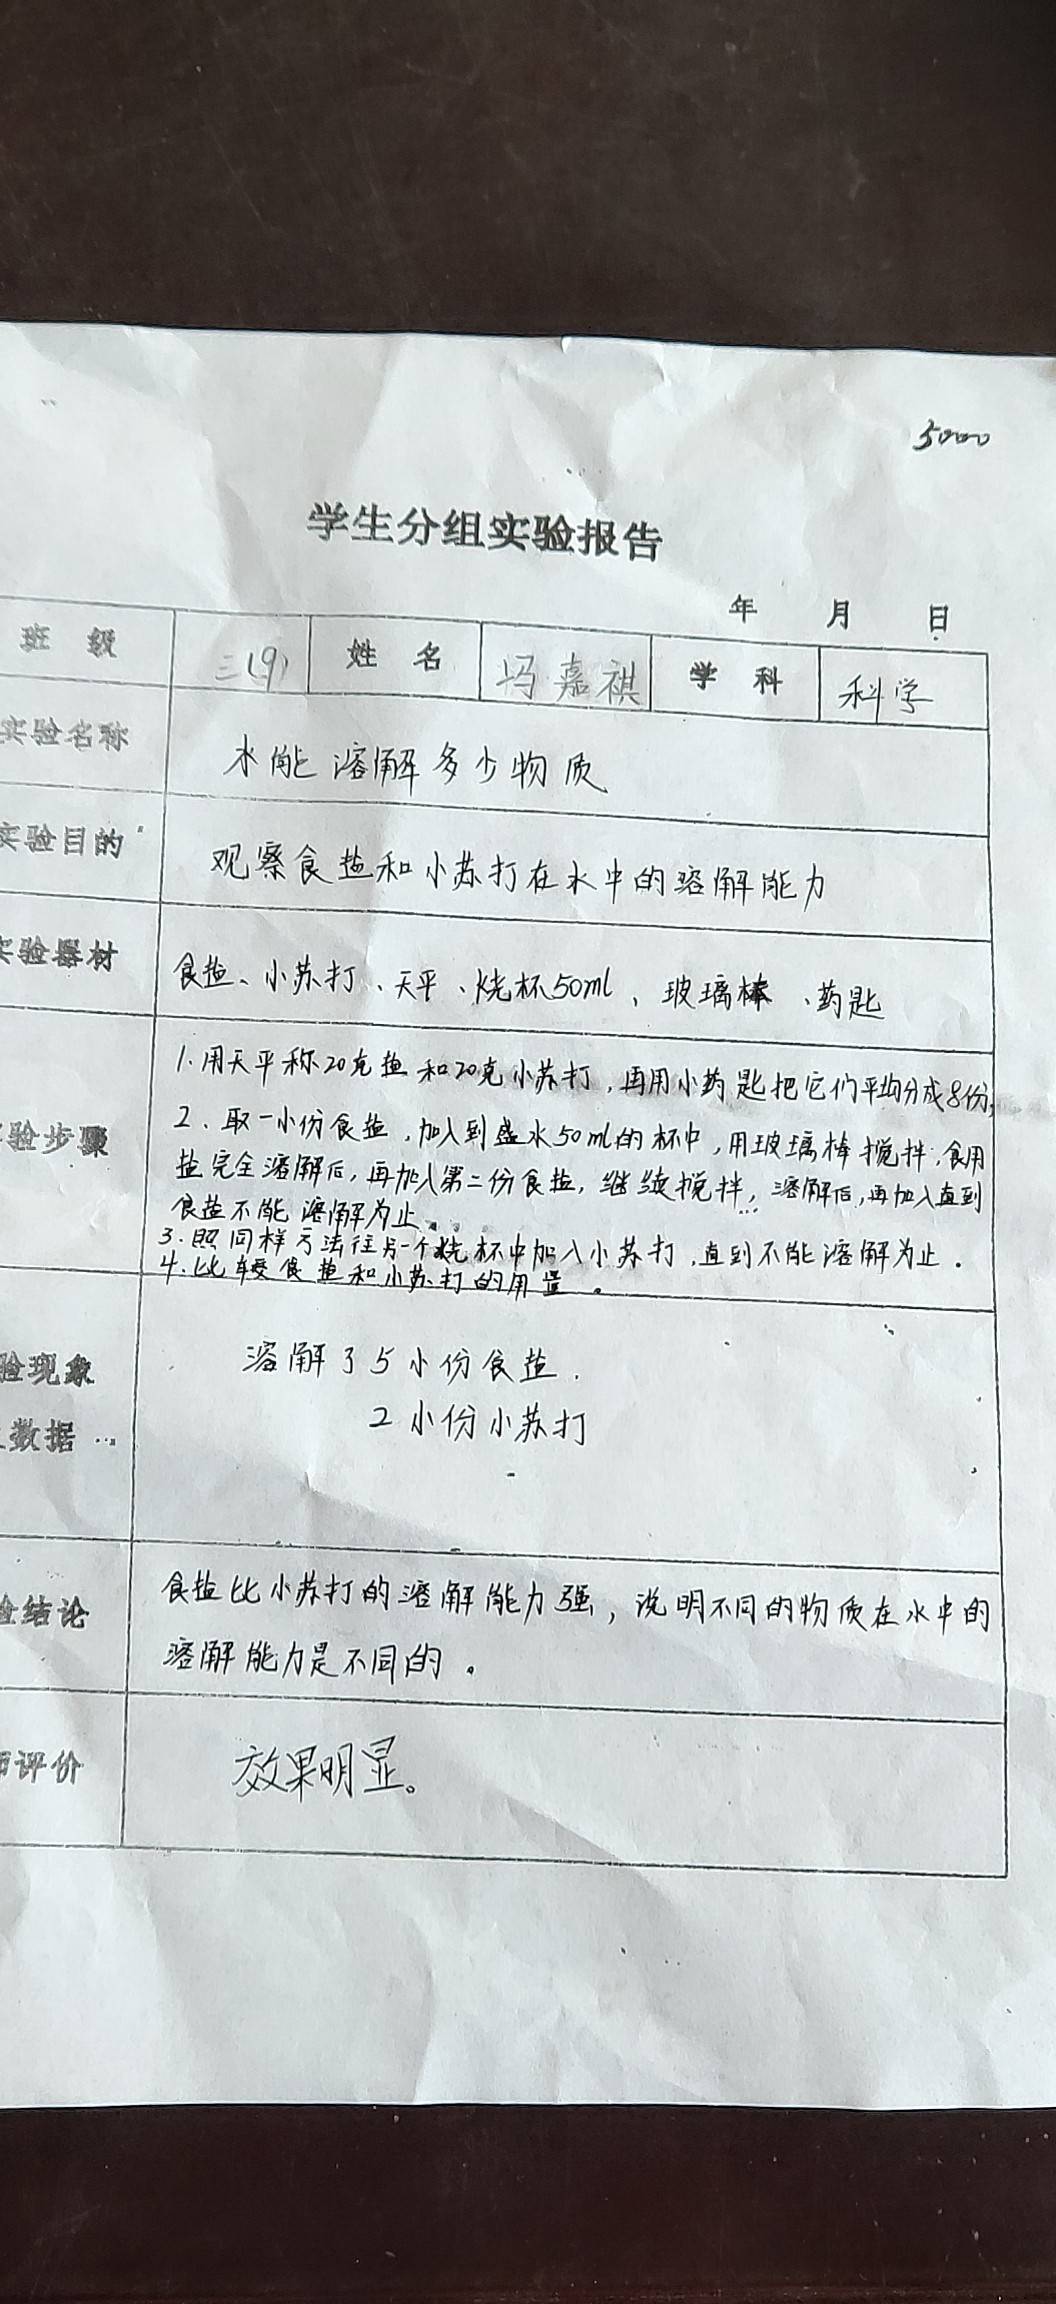 5000
学生分组实验报告
年 月 日
班 级 三(9) 姓 名 冯嘉祺 学 科 科学
实验名称 水能溶解多少物质
实验目的 观察食盐和小苏打在水中的溶解能力
实验器材 食盐、小苏打、天平、烧杯50ml、玻璃棒、药匙
1.用天平称20克盐和20克小苏打,再用小药匙把它们平均分成8份,
验步骤 2、取一小份食盐,加入到盛水50ml的杯中,用玻璃棒搅拌,食用
盐完全溶解后,再加入第二份食盐,继续搅拌,溶解后,再加入直到
食盐不能溶解为止。
3.照同样方法往另一个烧杯中加入小苏打,直到不能溶解为止.
4.比较食盐和小苏打的用量。
验现象 溶解了5小份食盐.
数据 2小份小苏打
验结论 食盐比小苏打的溶解能力强,说明不同的物质在水中的
溶解能力是不同的。
师评价 效果明显。